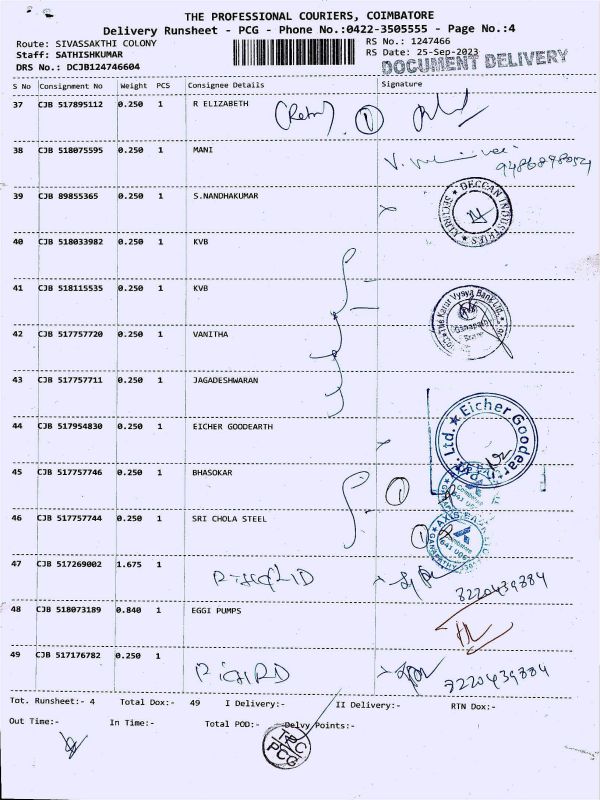 THE PROFESSIONAL COURIERS, COIMBATORE
Delivery Runsheet - PCG - Phone No.:0422-3505555 - Page No.:4
Route: SIVASSAKTHI COLONY
Staff: SATHISHKUMAR
DRS No.: DCJB124746604
RS No.: 1247466
RS Date: 25-Sep-2023
DOCUMENT DELIVERY
S No Consignment No Weight PCS Consignee Details Signature
37 CJB 517895112 0.250 1 R ELIZABETH
1
38 CJB 518075595 0.250 1 MANI
39 CJB 89855365 0.250 1 S.NANDHAKUMAR
DECCAN INDUSTRIES
40 CJB 518033982 0.250 1 KVB
41 CJB 518115535 0.250 1 KVB
The Karur Vysya Bank Ltd.
42 CJB 517757720 0.250 1 VANITHA
43 CJB 517757711 0.250 1 JAGADESHWARAN
44 CJB 517954830 0.250 1 EICHER GOODEARTH
Eicher Goodearth Pvt. Ltd.
45 CJB 517757746 0.250 1 BHASOKAR
1
46 CJB 517757744 0.250 1 SRI CHOLA STEEL
1
AXIS BANK LTD
47 CJB 517269002 1.675 1
8220439884
48 CJB 518073189 0.840 1 EGGI PUMPS
49 CJB 517176782 0.250 1
Tot. Runsheet:- 4 Total Dox:- 49 I Delivery:- II Delivery:- RTN Dox:-
Out Time:- In Time:- Total POD:- Delvy Points:-
TPC
PCG